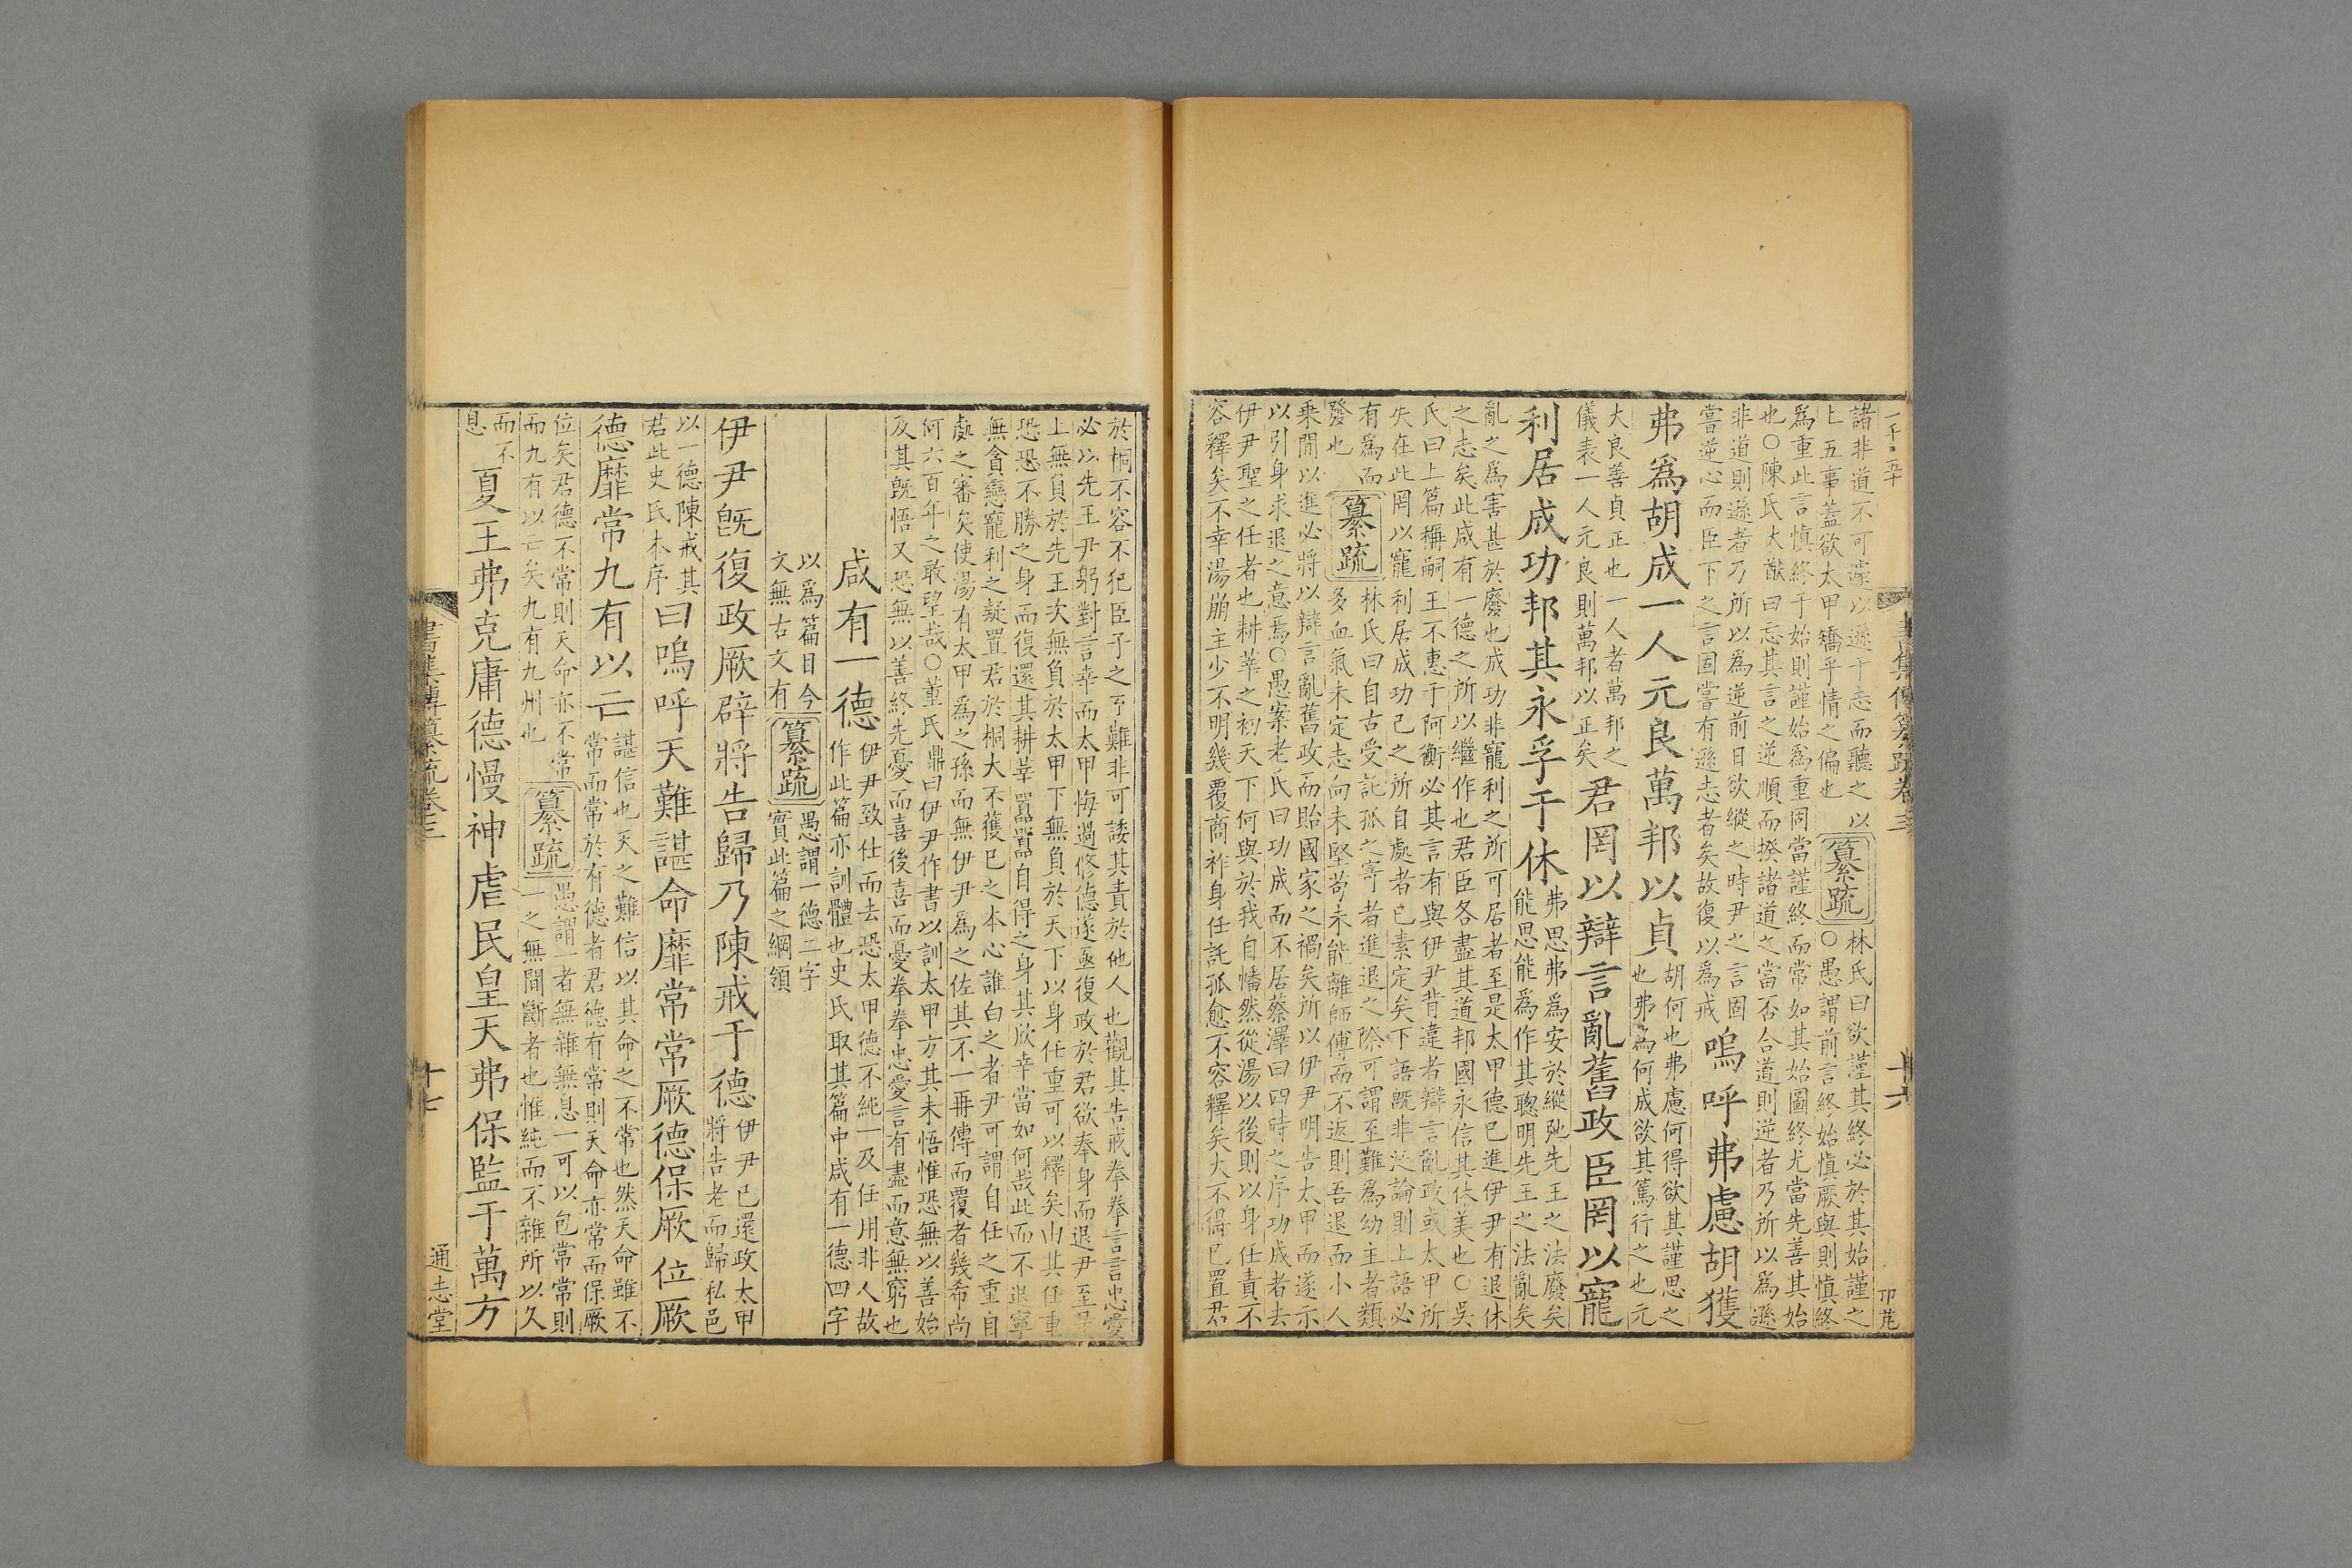 一千
五十
書集傳纂疏卷三
十六
諸非道不可遽以遜于志而聽之以
上五事蓋欲太甲矯乎情之偏也
纂疏
林氏曰欲謹其終必於其始謹之
○愚謂前言終始慎厥與則慎終
為重此言慎終于始則謹始為重固當謹終而常如其始圖終尤當先善其始
也○陳氏大猷曰忘其言之逆順而揆諸道之當否合道則逆者乃所以為遜
非道則遜者乃所以為逆前日欲縱之時尹之言固
嘗逆心而臣下之言固嘗有遜志者矣故復以為戒
嗚呼弗慮胡獲
弗爲胡成一人元良萬邦以貞
胡何也弗慮何得欲其謹思之
也弗爲何成欲其篤行之也元
大良善貞正也一人者萬邦之
儀表一人元良則萬邦以正矣
君罔以辯言亂舊政臣罔以寵
利居成功邦其永孚于休
弗思弗爲安於縱弛先王之法廢矣
能思能爲作其聰明先王之法亂矣
亂之爲害甚於廢也成功非寵利之所可居者至是太甲德已進伊尹有退休
之志矣此咸有一德之所以繼作也君臣各盡其道邦國永信其休美也○吳
氏曰上篇稱嗣王不惠于阿衡必其言有與伊尹背違者辯言亂政或太甲所
失在此罔以寵利居成功己之所自處者已素定矣下語既非泛論則上語必
有爲而
發也
纂疏
林氏曰自古受託孤之寄者進退之際可謂至難爲幼主者類
多血氣未定志向未堅苟未能離師傅而不返則吾退而小人
乗間以進必將以辯言亂舊政而貽國家之禍矣所以伊尹明告太甲而遂示
以引身求退之意焉○愚案老氏曰功成而不居蔡澤曰四時之序功成者去
伊尹聖之任者也耕莘之初天下何與於我自幡然從湯以後則以身任責不
容釋矣不幸湯崩主少不明幾覆商祚身任託孤愈不容釋矣大不得已置君
於桐不容不犯臣子之至難非可諉其責於他人也觀其告戒拳拳言言忠愛
必以先王尹躬對言幸而太甲悔過修德遂亟復政於君欲奉身而退尹至是
上無負於先王次無負於太甲下無負於天下以身任重可以釋矣山其任重
恐恐不勝之身而復還其耕莘囂囂自得之身其欣幸當如何哉此而不退寧
無貪戀寵利之疑置君於桐大不獲已之本心誰白之者尹可謂自任之重自
處之審矣使湯有太甲爲之孫而無伊尹爲之佐其不一再傳而覆者幾希尚
何六百年之敢望哉○董氏鼎曰伊尹作書以訓太甲方其未悟惟恐無以善始
及其既悟又恐無以善終先憂而喜後喜而憂拳拳忠愛言有盡而意無窮也
咸有一德
伊尹致仕而去恐太甲德不純一及任用非人故
作此篇亦訓體也史氏取其篇中咸有一德四字
以爲篇目今
文無古文有
纂疏
愚謂一德二字
實此篇之綱領
伊尹旣復政厥辟將告歸乃陳戒于德
伊尹已還政太甲
將告老而歸私邑
以一德陳戒其
君此史氏本序
曰嗚呼天難諶命靡常常厥德保厥位厥
德靡常九有以亡
諶信也天之難信以其命之不常也然天命雖不
常而常於有德者君德有常則天命亦常而保厥
位矣君德不常則天命亦不常
而九有以亡矣九有九州也
纂疏
愚謂一者無雜無息一可以包常常則
一之無間斷者也惟純而不雜所以久
而不
息
夏王弗克庸德慢神虐民皇天弗保監于萬方
書集傳纂疏卷三
十七
通志堂